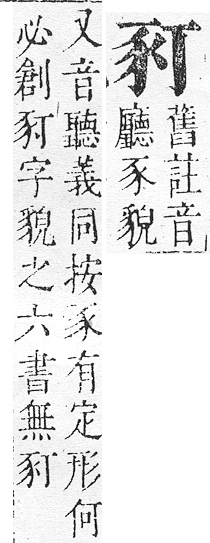 舊註音
廳豕貌
又音聽義同按豕有定形何
必創字貌之六書無